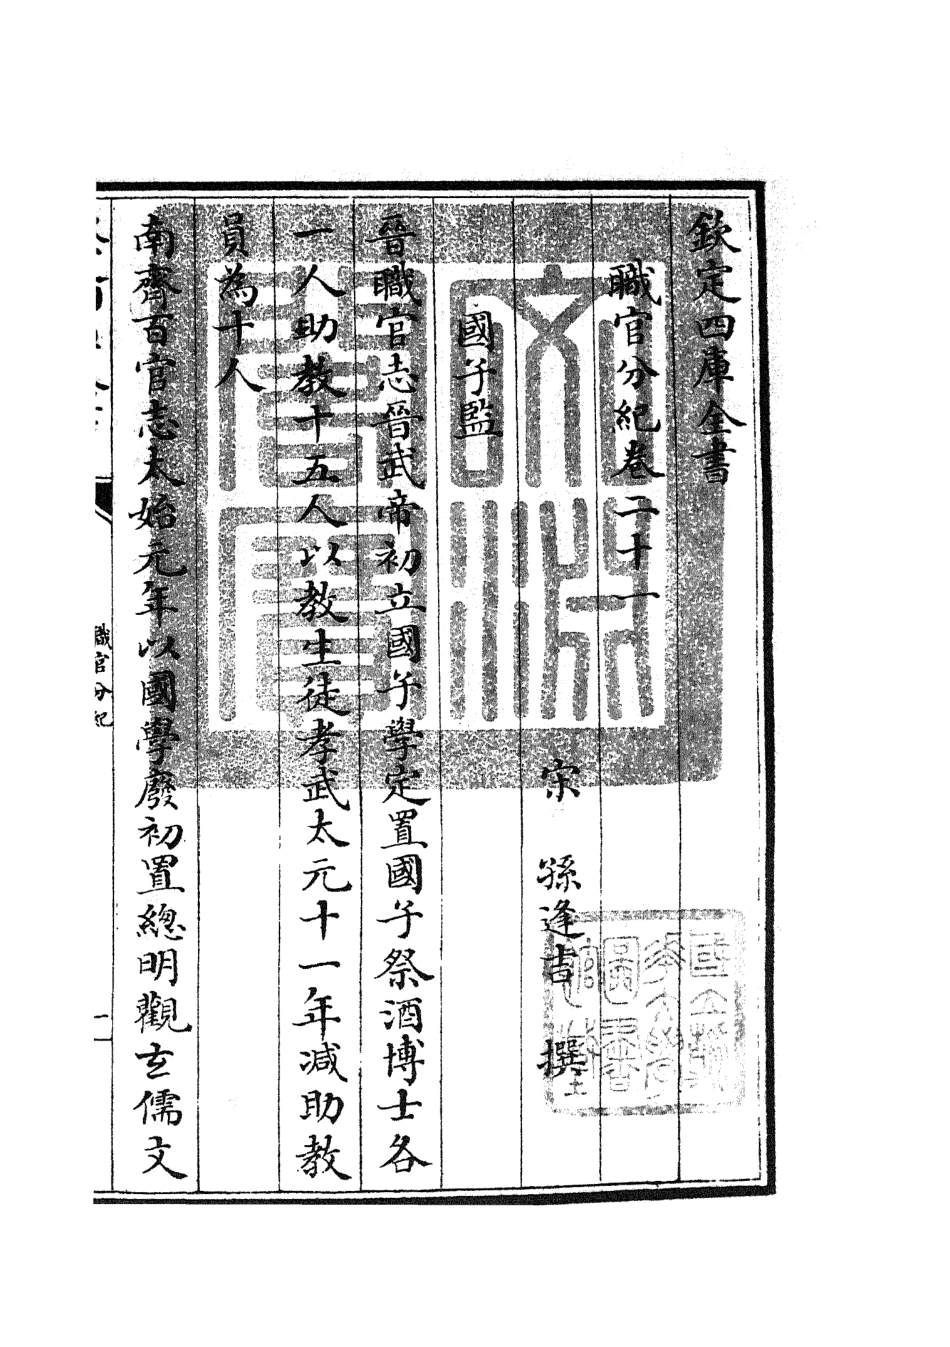 欽定四庫全書
職官分紀卷二十一
宋 孫逢吉 撰
國子監
晉職官志晉武帝初立國子學定置國子祭酒博士各
一人助教十五人以教生徒孝武太元十一年減助教
員為十人
南齊百官志太始元年以國學廢初置總明觀玄儒文
職官分紀
一